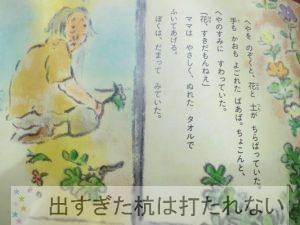 へやを のぞくと、花と 土が ちらばっていた。
手も かおも よごれた ばあば。ちょこんと、
へやのすみに すわっていた。
「花、すきだもんねえ」
ママは やさしく、ぬれた タオルで
ふいてあげる。
ぼくは、だまって みていた。
出すぎた杭は打たれない